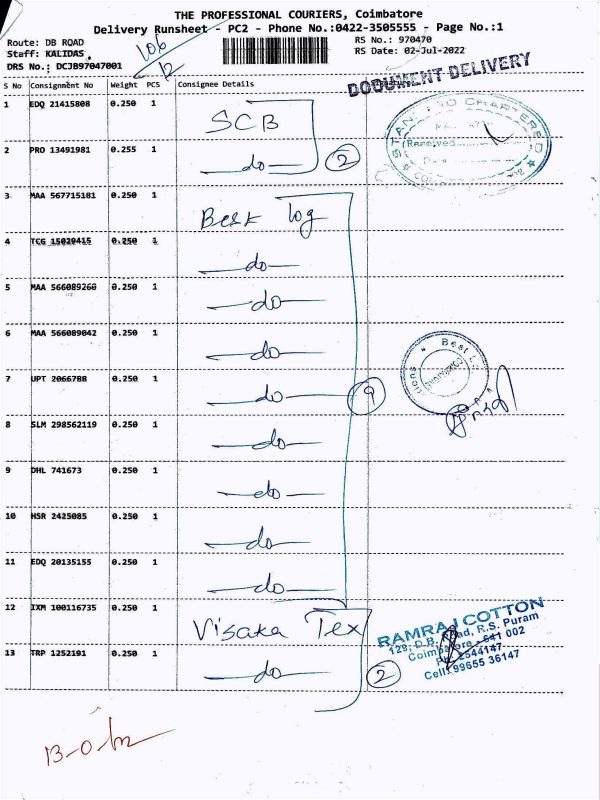 THE PROFESSIONAL COURIERS, Coimbatore
Delivery Runsheet - PC2 - Phone No.:0422-3505555 - Page No.:1
Route: DB ROAD
RS No.: 970470
Staff: KALIDAS
RS Date: 02-Jul-2022
DRS No.: DCJB97047001
106
12
DOCUMENT DELIVERY
S No Consignment No Weight PCS Consignee Details
1 EDQ 21415808 0.250 1 SCB
STANDARD CHARTERED
Received
2 PRO 13491981 0.255 1 do 2
3 MAA 567715181 0.250 1 Best log
4 TCG 15029415 0.250 1 do
5 MAA 566089260 0.250 1 do
6 MAA 566089042 0.250 1 do
Best
7 UPT 2066788 0.250 1 do 9
8 SLM 298562119 0.250 1 do
9 DHL 741673 0.250 1 do
10 HSR 2425085 0.250 1 do
11 EDQ 20135155 0.250 1 do
12 IXM 100116735 0.250 1 Visaka Tex
13 TRP 1252191 0.250 1 do 2
RAMRAJ COTTON
129, D.B. Road, R.S. Puram
Coimbatore - 641 002
Ph: 2544147
Cell: 99655 36147